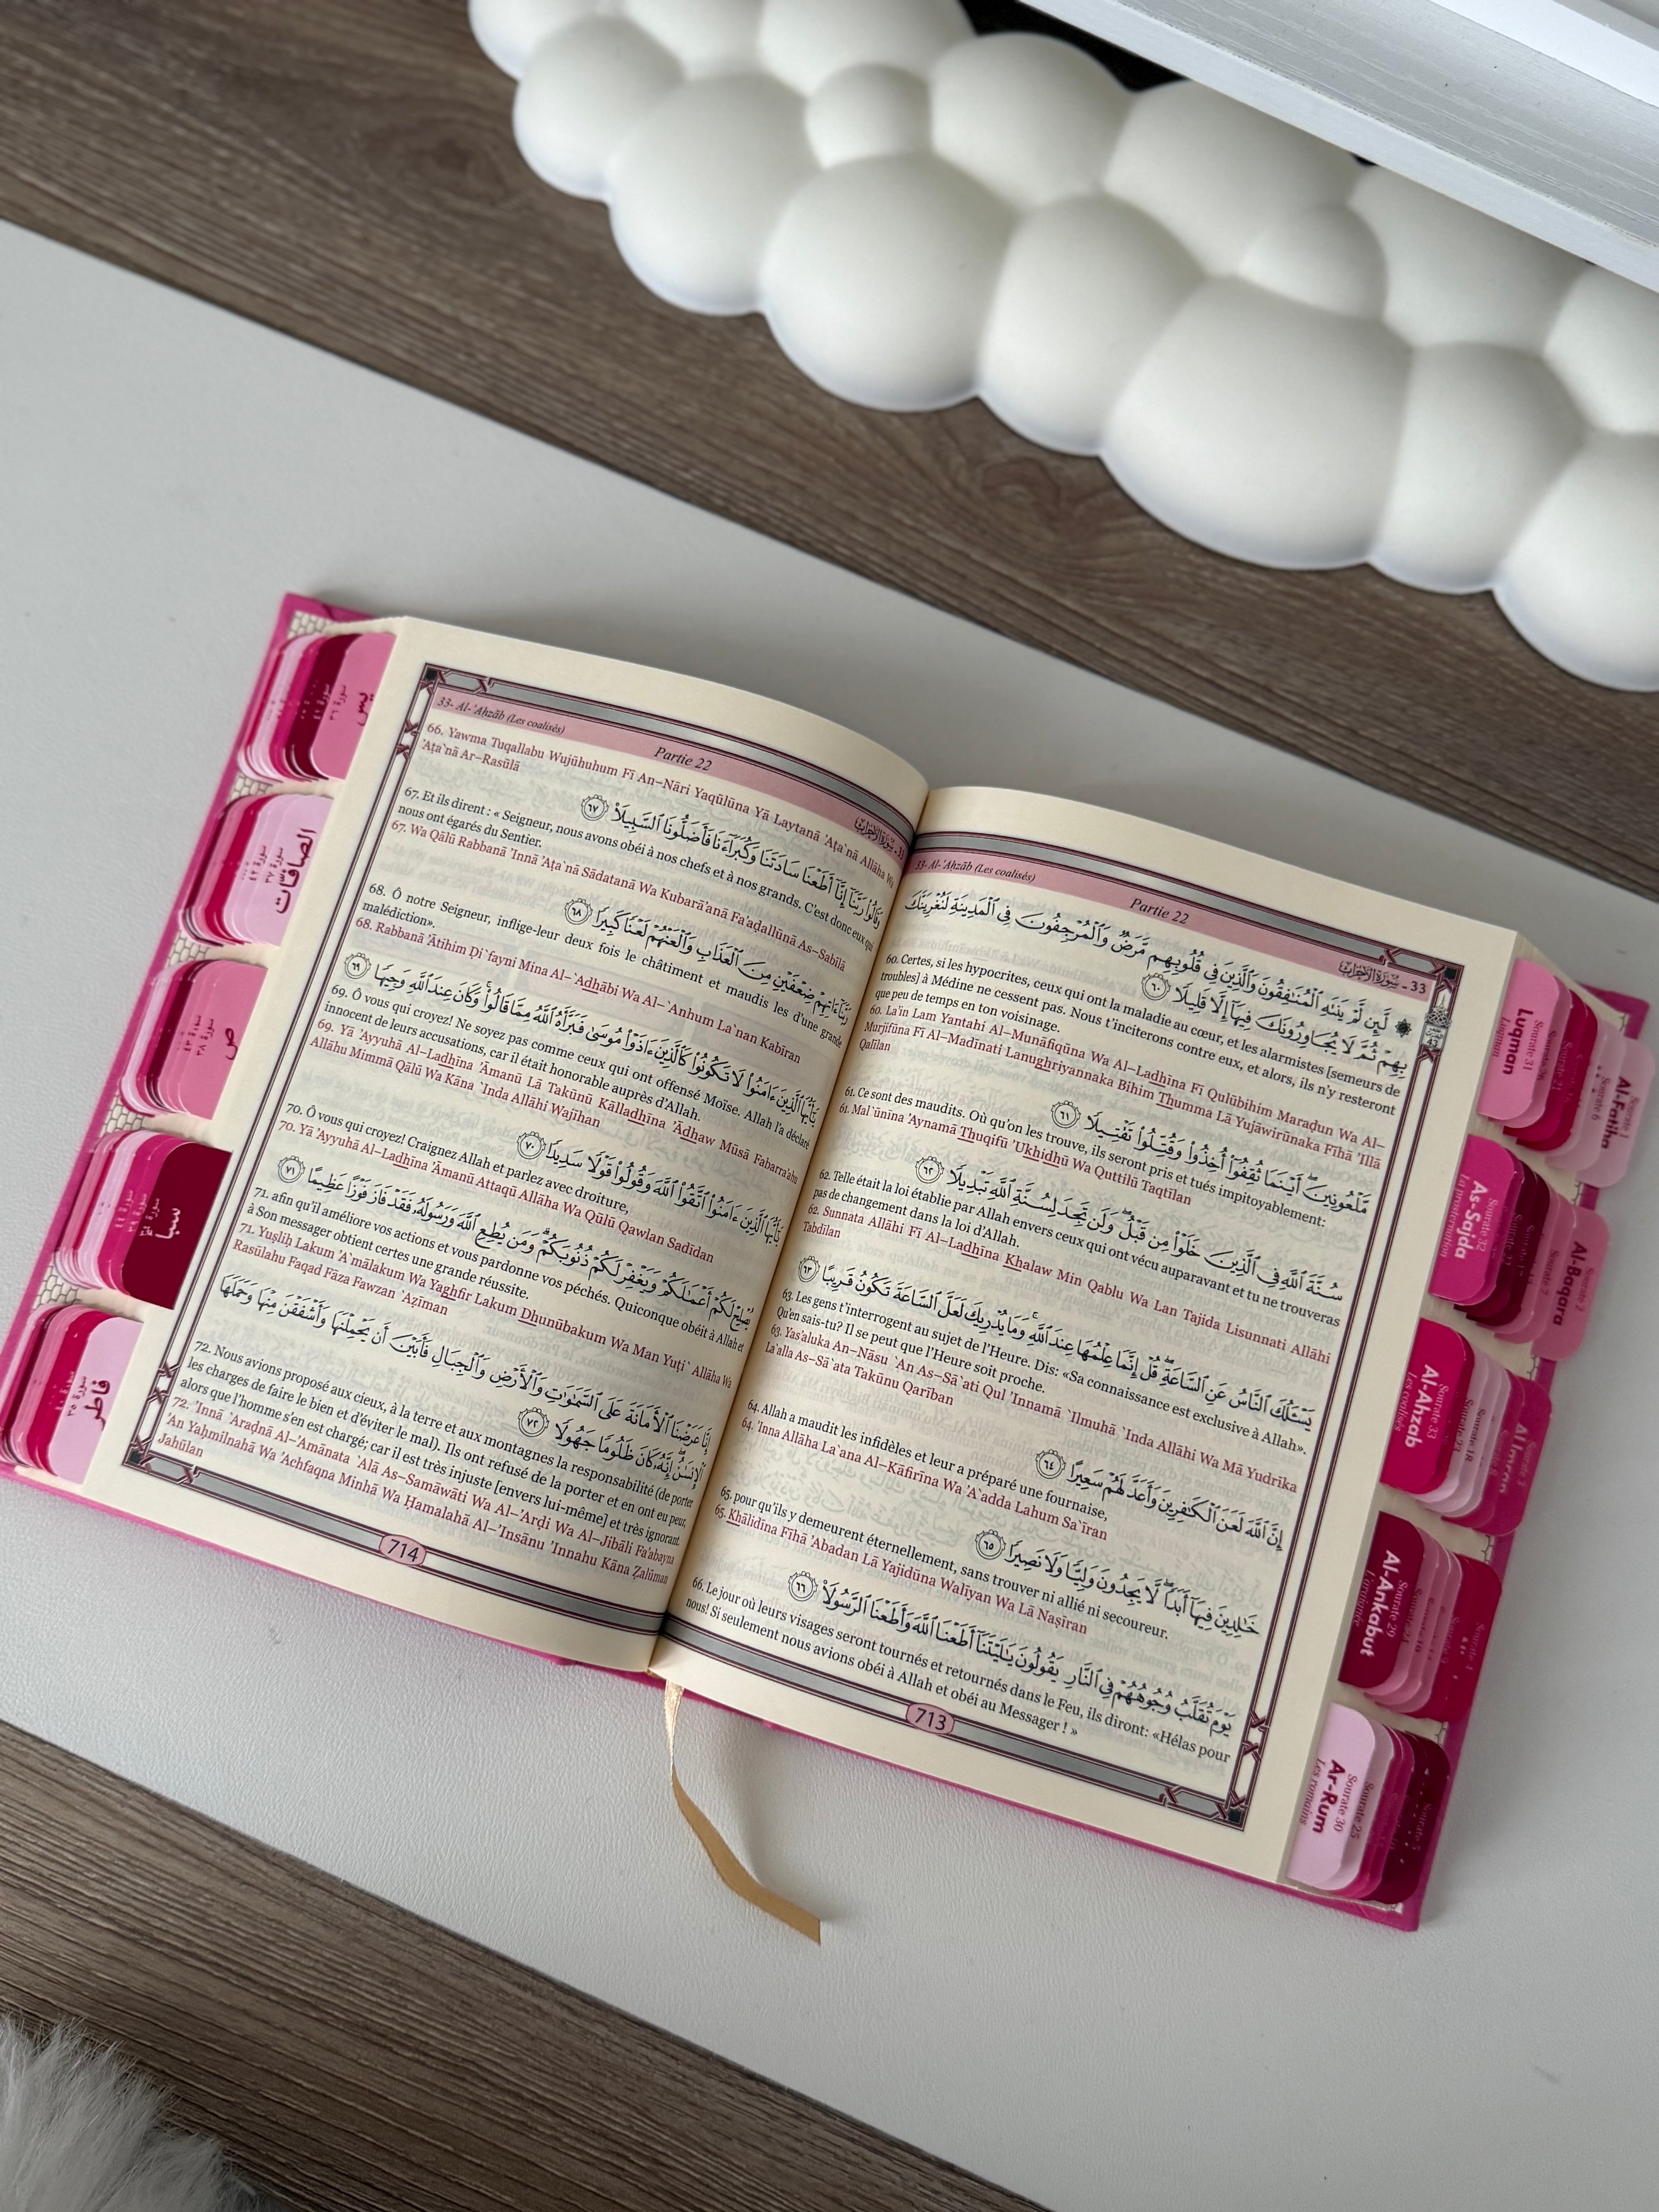 33- Al-'Ahzāb (Les coalisés)
Partie 22
33 - سورة الأحزاب
۞ لَّئِن لَّمْ يَنتَهِ ٱلْمُنَٰفِقُونَ وَٱلَّذِينَ فِى قُلُوبِهِم مَّرَضٌ وَٱلْمُرْجِفُونَ فِى ٱلْمَدِينَةِ لَنُغْرِيَنَّكَ
بِهِمْ ثُمَّ لَا يُجَاوِرُونَكَ فِيهَآ إِلَّا قَلِيلًا ٦٠
60. Certes, si les hypocrites, ceux qui ont la maladie au cœur, et les alarmistes [semeurs de
troubles] à Médine ne cessent pas. Nous t'inciterons contre eux, et alors, ils n'y resteront
que peu de temps en ton voisinage.
60. La'in Lam Yantahi Al–Munāfiqūna Wa Al–Ladhīna Fī Qulūbihim Maraḍun Wa Al–
Murjifūna Fī Al–Madīnati Lanughriyannaka Bihim Thumma Lā Yujāwirūnaka Fīhā 'Illā
Qalīlan
مَّلْعُونِينَ ۖ أَيْنَمَا ثُقِفُوٓا۟ أُخِذُوا۟ وَقُتِّلُوا۟ تَقْتِيلًا ٦١
61. Ce sont des maudits. Où qu'on les trouve, ils seront pris et tués impitoyablement:
61. Mal`ūnīna 'Aynamā Thuqifū 'Ukhidhū Wa Quttilū Taqtīlan
سُنَّةَ ٱللَّهِ فِى ٱلَّذِينَ خَلَوْا۟ مِن قَبْلُ ۖ وَلَن تَجِدَ لِسُنَّةِ ٱللَّهِ تَبْدِيلًا ٦٢
62. Telle était la loi établie par Allah envers ceux qui ont vécu auparavant et tu ne trouveras
pas de changement dans la loi d'Allah.
62. Sunnata Allāhi Fī Al–Ladhīna Khalaw Min Qablu Wa Lan Tajida Lisunnati Allāhi
Tabdīlan
يَسْـَٔلُكَ ٱلنَّاسُ عَنِ ٱلسَّاعَةِ ۖ قُلْ إِنَّمَا عِلْمُهَا عِندَ ٱللَّهِ ۚ وَمَا يُدْرِيكَ لَعَلَّ ٱلسَّاعَةَ تَكُونُ قَرِيبًا ٦٣
63. Les gens t'interrogent au sujet de l'Heure. Dis: «Sa connaissance est exclusive à Allah».
Qu'en sais-tu? Il se peut que l'Heure soit proche.
63. Yas'aluka An–Nāsu `An As–Sā`ati Qul 'Innamā `Ilmuhā `Inda Allāhi Wa Mā Yudrīka
La`alla As–Sā`ata Takūnu Qarīban
إِنَّ ٱللَّهَ لَعَنَ ٱلْكَٰفِرِينَ وَأَعَدَّ لَهُمْ سَعِيرًا ٦٤
64. Allah a maudit les infidèles et leur a préparé une fournaise,
64. 'Inna Allāha La`ana Al–Kāfirīna Wa 'A`adda Lahum Sa`īran
خَٰلِدِينَ فِيهَآ أَبَدًا ۖ لَّا يَجِدُونَ وَلِيًّا وَلَا نَصِيرًا ٦٥
65. pour qu'ils y demeurent éternellement, sans trouver ni allié ni secoureur.
65. Khālidīna Fīhā 'Abadan Lā Yajidūna Walīyan Wa Lā Naṣīran
يَوْمَ تُقَلَّبُ وُجُوهُهُمْ فِى ٱلنَّارِ يَقُولُونَ يَٰلَيْتَنَآ أَطَعْنَا ٱللَّهَ وَأَطَعْنَا ٱلرَّسُولَا۠ ٦٦
66. Le jour où leurs visages seront tournés et retournés dans le Feu, ils diront: «Hélas pour
nous! Si seulement nous avions obéi à Allah et obéi au Messager ! »
713
33- Al-'Ahzāb (Les coalisés)
Partie 22
33 - سورة الأحزاب
66. Yawma Tuqallabu Wujūhuhum Fī An–Nāri Yaqūlūna Yā Laytanā 'Aṭa`nā Allāha Wa
'Aṭa`nā Ar–Rasūlā
وَقَالُوا۟ رَبَّنَآ إِنَّآ أَطَعْنَا سَادَتَنَا وَكُبَرَآءَنَا فَأَضَلُّونَا ٱلسَّبِيلَا۠ ٦٧
67. Et ils dirent : « Seigneur, nous avons obéi à nos chefs et à nos grands. C'est donc eux qui
nous ont égarés du Sentier.
67. Wa Qālū Rabbanā 'Innā 'Aṭa`nā Sādatanā Wa Kubarā'anā Fa'aḍallūnā As–Sabīlā
رَبَّنَآ ءَاتِهِمْ ضِعْفَيْنِ مِنَ ٱلْعَذَابِ وَٱلْعَنْهُمْ لَعْنًا كَبِيرًا ٦٨
68. Ô notre Seigneur, inflige-leur deux fois le châtiment et maudis les d'une grande
malédiction».
68. Rabbanā 'Ātihim Ḍi`fayni Mina Al–`Adhābi Wa Al–`Anhum La`nan Kabīran
يَٰٓأَيُّهَا ٱلَّذِينَ ءَامَنُوا۟ لَا تَكُونُوا۟ كَٱلَّذِينَ ءَاذَوْا۟ مُوسَىٰ فَبَرَّأَهُ ٱللَّهُ مِمَّا قَالُوا۟ ۚ وَكَانَ عِندَ ٱللَّهِ وَجِيهًا ٦٩
69. Ô vous qui croyez! Ne soyez pas comme ceux qui ont offensé Moïse. Allah l'a déclaré
innocent de leurs accusations, car il était honorable auprès d'Allah.
69. Yā 'Ayyuhā Al–Ladhīna 'Āmanū Lā Takūnū Kālladhīna 'Ādhaw Mūsā Fabarra'ahu
Allāhu Mimmā Qālū Wa Kāna `Inda Allāhi Wajīhan
يَٰٓأَيُّهَا ٱلَّذِينَ ءَامَنُوا۟ ٱتَّقُوا۟ ٱللَّهَ وَقُولُوا۟ قَوْلًا سَدِيدًا ٧٠
70. Ô vous qui croyez! Craignez Allah et parlez avec droiture,
70. Yā 'Ayyuhā Al–Ladhīna 'Āmanū Attaqū Allāha Wa Qūlū Qawlan Sadīdan
يُصْلِحْ لَكُمْ أَعْمَٰلَكُمْ وَيَغْفِرْ لَكُمْ ذُنُوبَكُمْ ۗ وَمَن يُطِعِ ٱللَّهَ وَرَسُولَهُۥ فَقَدْ فَازَ فَوْزًا عَظِيمًا ٧١
71. afin qu'il améliore vos actions et vous pardonne vos péchés. Quiconque obéit à Allah et
à Son messager obtient certes une grande réussite.
71. Yuṣliḥ Lakum 'A`mālakum Wa Yaghfir Lakum Dhunūbakum Wa Man Yuṭi` Allāha Wa
Rasūlahu Faqad Fāza Fawzan `Aẓīman
إِنَّا عَرَضْنَا ٱلْأَمَانَةَ عَلَى ٱلسَّمَٰوَٰتِ وَٱلْأَرْضِ وَٱلْجِبَالِ فَأَبَيْنَ أَن يَحْمِلْنَهَا وَأَشْفَقْنَ مِنْهَا وَحَمَلَهَا
ٱلْإِنسَٰنُ ۖ إِنَّهُۥ كَانَ ظَلُومًا جَهُولًا ٧٢
72. Nous avions proposé aux cieux, à la terre et aux montagnes la responsabilité (de porter
les charges de faire le bien et d'éviter le mal). Ils ont refusé de la porter et en ont eu peur,
alors que l'homme s'en est chargé; car il est très injuste [envers lui-même] et très ignorant.
72. 'Innā `Araḍnā Al–'Amānata `Alā As–Samāwāti Wa Al–'Arḍi Wa Al–Jibāli Fa'abayna
'An Yaḥmilnahā Wa 'Achfaqna Minhā Wa Ḥamalahā Al–'Insānu 'Innahu Kāna Ẓalūman
Jahūlan
714
Sourate 31
Luqman
Luqman
Sourate 1
Al-Fatiha
Sourate 32
As-Sajda
La prosternation
Sourate 2
Al-Baqara
Sourate 33
Al-Ahzab
Les coalisés
Sourate 3
Al Imran
Sourate 29
Al-Ankabut
L'araignée
Sourate 30
Ar-Rum
Les romains
Sourate 25
سورة ٣٦
يس
سورة ٣٧
الصافات
سورة ٣٨
ص
سورة ٣٤
سبأ
سورة ٣٥
فاطر